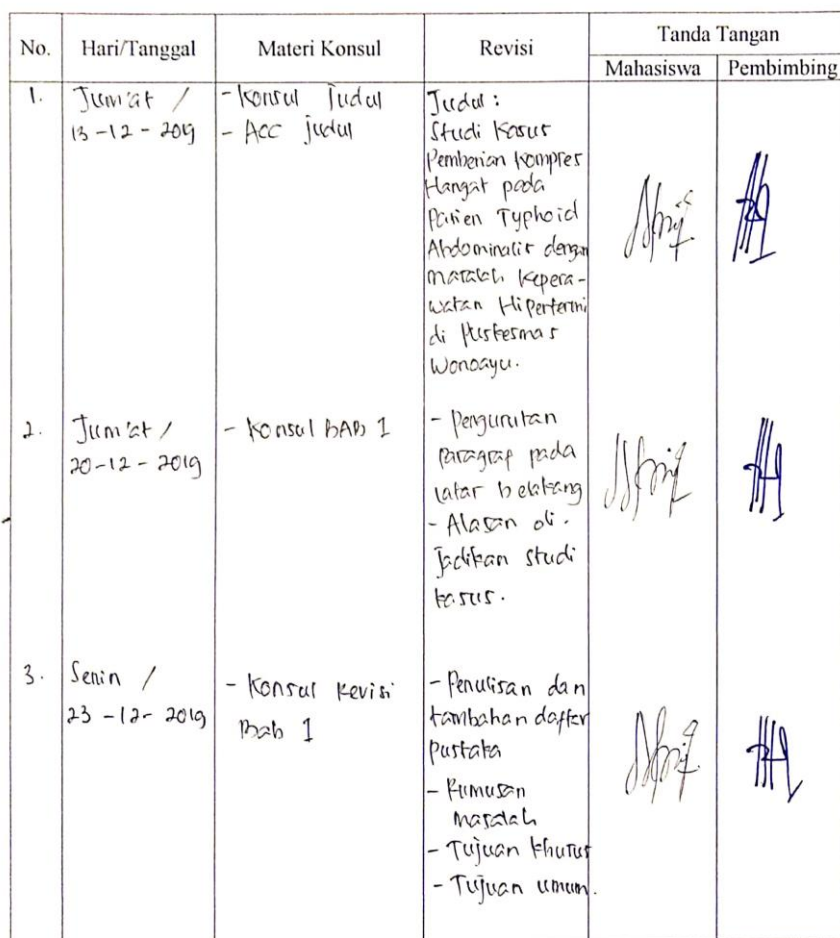 No. Hari/Tanggal Materi Konsul Revisi Tanda Tangan
Mahasiswa Pembimbing
1. Jum'at / - Konsul Judul Judul :
13 -12 - 2019 - Acc judul Studi Kasus
Pemberian Kompres
Hangat pada
Pasien Typhoid
Abdominalis dengan
masalah Kepera-
watan Hipertermi
di Puskesmas
Wonoayu.
2. Jum'at / - Konsul BAB 1 - Pengurutan
20-12 - 2019 paragraf pada
latar belakang
- Alasan di-
jadikan studi
kasus.
3. Senin / - Konsul Revisi - Penulisan dan
23 -12- 2019 Bab 1 tambahan daftar
pustaka
- Rumusan
masalah
- Tujuan khusus
- Tujuan umum.